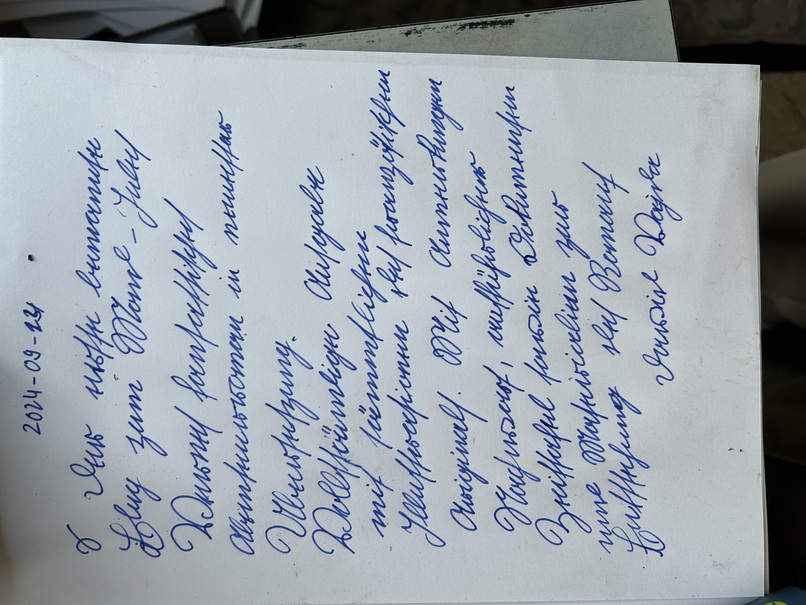 2024-09-24
Der erste bemannte
Flug zum Mond – Jules
Vernes fantastischer
Abenteuerroman in neuester
Übersetzung.
Vollständige Ausgabe
mit sämmtlichen
Illustrationen des französischen
Originals. Mit Anmerkungen
Nachwort, ausführlicher
Zeittafel sowie Dokumenten
und Materialien zur
Entstehung des Romans
Dawid Wajda